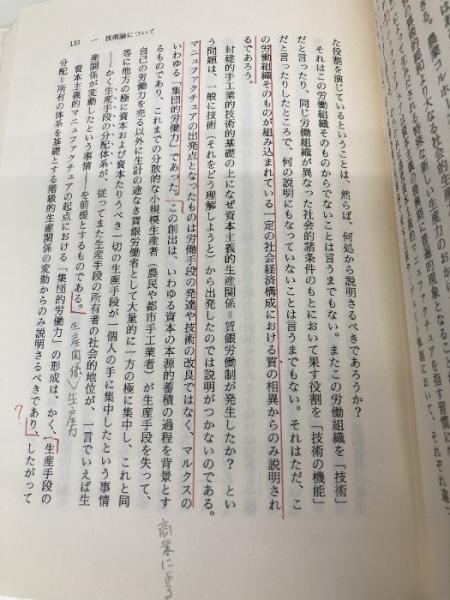 133 一 技術論について
た役割を演じているということは、然らば、何処から説明さるべきであろうか?
それはこの労働組織そのものからでないことは言うまでもない。またこの労働組織を「技術」
だと言ったり、同じ労働組織が異なった社会的諸条件のもとにおいて果す役割を「技術の機能」
だと言ったりしたところで、何の説明にもなっていないことは言うまでもない。それはただ、こ
の労働組織そのものが組み込まれている一定の社会経済構成における質の相異からのみ説明され
るであろう。
封建的手工業的技術的基礎の上になぜ資本主義的生産関係=賃銀労働制が発生したか? とい
う問題は、一般に技術(それをどう理解しようと)から出発したのでは説明がつかないのである。
マニュファクチュアの出発点となったものは労働手段の発達や技術の改良ではなく、マルクスの
いわゆる「集団的労働力」であった。この創出は、いわゆる資本の本源的蓄積の過程を背景とす
るものであり、これまでの分散的な小規模生産者(農民や都市手工業者)が生産手段を失って、
自己の労働力を売る以外に生計の途なき賃銀労働者として大量的に一方の極に集中し、これと同
等に他方の極に資本および資本たりうべき一切の生産手段が一個人の手に集中したという事情
――かく生産手段の分配体系が、従ってまた生産手段の所有者の社会的地位が、一言でいえば生
産関係が変動したという事情――を前提とするものである。
資本主義的マニュファクチュアの起点における「集団的労働力」の形成は、かく、生産手段の
分配=所有の体系を基礎とする階級的生産関係の変動からのみ説明さるべきであり、したがって
生産関係〉生産力
?
商業による